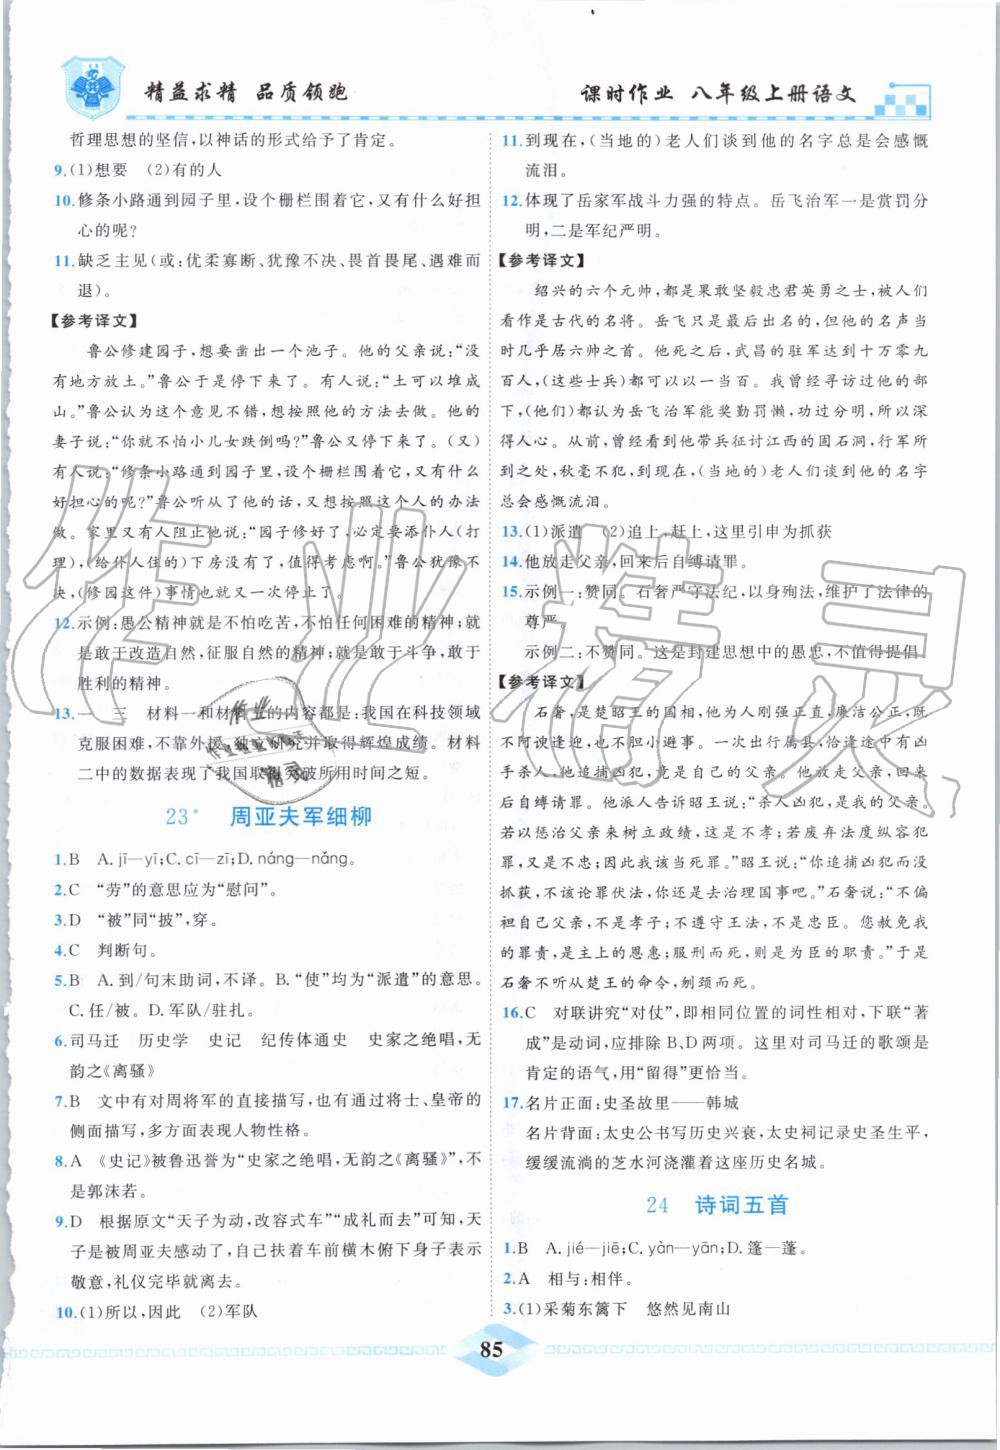 精益求精 品质领跑
课时作业 八年级上册语文
哲理思想的坚信,以神话的形式给予了肯定。
9.(1)想要 (2)有的人
10.修条小路通到园子里,设个栅栏围着它,又有什么好担
心的呢?
11.缺乏主见(或:优柔寡断、犹豫不决、畏首畏尾、遇难而
退)。
【参考译文】
鲁公修建园子,想要凿出一个池子。他的父亲说:“没
有地方放土。”鲁公于是停了下来。有人说:“土可以堆成
山。”鲁公认为这个意见不错,想按照他的方法去做。他的
妻子说:“你就不怕小儿女跌倒吗?”鲁公又停下来。(又)
有人说:“修条小路通到园子里,设个栅栏围着它,又有什么
好担心的呢?”鲁公听从了他的话,又想按照这个人的办法
做。家里又有人阻止他说:“园子修好了,必定要添仆人(打
理),(给仆人住的)下房没有住的,值得考虑啊。”鲁公犹豫不
决,(修园这件)事情也就又一次停止了。
12.示例:愚公精神就是不怕吃苦,不怕任何困难的精神;就
是敢于改造自然,征服自然的精神;就是敢于斗争,敢于
胜利的精神。
13.一 三 材料一和材料三的内容都是:我国在科技领域
克服困难,不靠外援,独立研究并取得辉煌成绩。材料
二中的数据表现了我国取得突破所用时间之短。
23* 周亚夫军细柳
1.B A.jī—yī;C.cī—zī;D.náng—nǎng。
2.C “劳”的意思应为“慰问”。
3.D “被”同“披”,穿。
4.C 判断句。
5.B A.到/句末助词,不译。B.“使”均为“派遣”的意思。
C.任/被。D.军队/驻扎。
6.司马迁 历史学 史记 纪传体通史 史家之绝唱,无
韵之《离骚》
7.B 文中有对周将军的直接描写,也有通过将士、皇帝的
侧面描写,多方面表现人物性格。
8.A 《史记》被鲁迅誉为“史家之绝唱,无韵之《离骚》”,不
是郭沫若。
9.D 根据原文“天子为动,改容式车”“成礼而去”可知,天
子被周亚夫感动了,自己扶着车前横木俯下身子,表示
敬意,礼仪完毕就离去。
10.(1)所以,因此 (2)军队
11.到现在,(当地的)老人们谈到他的名字总是会感慨
流泪。
12.体现了岳家军战斗力强的特点。岳飞治军一是赏罚分
明,二是军纪严明。
【参考译文】
绍兴的六个元帅,都是果敢坚毅忠君英勇之士,被人们
看作是古代的名将。岳飞是最后出名的,但他的名声当
时几乎居六帅之首。他死之后,武昌的驻军达到十万零九
百人,(这些士兵)都能以一当百。我曾经寻访过他的旧部
下,(他们)都认为岳飞治军能奖勤罚懒,功过分明,所以深
得人心。从前,曾经见到他带兵征讨江西的固石洞,行军所
到之处,秋毫不犯,到现在,(当地的)老人们谈到他的名字
总会感慨流泪。
13.(1)派遣 (2)追上,赶上,这里引申为抓获
14.他放走父亲,回来后自缚请罪。
15.示例一:赞同。石奢严守法纪,以身殉法,维护了法律的
尊严。
示例二:不赞同。这是封建思想中的愚忠,不值得提倡。
【参考译文】
石奢,是楚昭王的国相,他为人刚强正直,廉洁公正,既
不阿谀逢迎,也不胆小避事。一次出行属县,恰逢途中有凶
手杀人,他追捕凶犯,竟是自己的父亲。他放走父亲,归来
后自缚请罪。他派人告诉昭王说:“杀人凶犯,是我的父亲。
若以惩治父亲来树立政绩,这是不孝;若废弃法度纵容犯
罪,又是不忠;因此我该当死罪。”昭王说:“你追捕凶犯而没
抓获,不该论罪伏法,你还是去治理国事吧。”石奢说:“不偏
袒自己父亲,不是孝子;不遵守王法,不是忠臣。您赦免我
的罪责,是主上的恩惠;服刑而死,则是为臣的职责。”于是
石奢不听从楚王的命令,刎颈而死。
16.C 对联讲究“对仗”,即相同位置的词性相对,下联“著
成”是动词,应排除B、D两项。这里对司马迁的歌颂是
肯定的语气,用“留得”更恰当。
17.名片正面:史圣故里——韩城
名片背面:太史公书写历史兴衰,太史祠记录史圣生平,
缓缓流淌的芝水河浇灌着这座历史名城。
24 诗词五首
1.B A.jié—jiē;C.yàn—yān;D.篷—蓬。
2.A 相与:相伴。
3.(1)采菊东篱下 悠然见南山
85
作业精灵